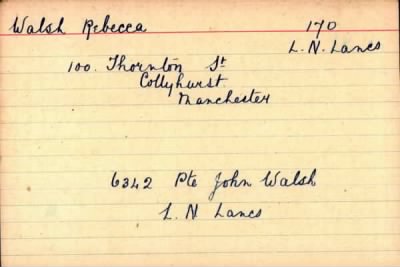 Walsh Rebecca 170
L. N. Lancs
100. Thornton St
Collyhurst
Manchester
6342 Pte John Walsh
L. N Lancs